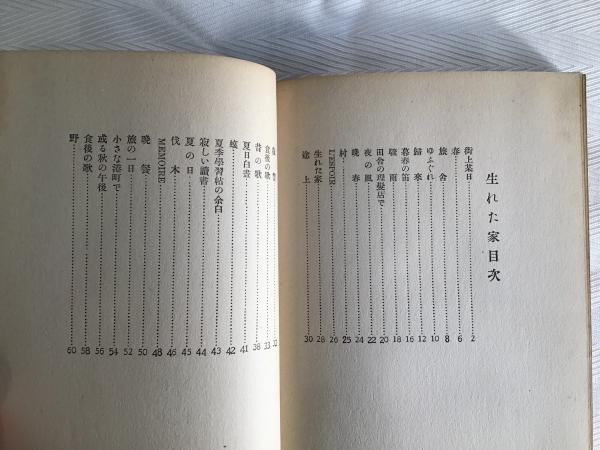 生れた家目次
街上某日……2
春……6
旅舎……8
ゆふぐれ……10
歸來……12
暮春の笛……16
驟雨……18
田舍の理髮店で……20
夜の風……22
晚春……24
村……25
L'ESPOIR……26
生れた家……28
途上……30
32
食後の歌……33
昔の歌……38
夏日白晝……41
蟻……42
夏季學習帖の余白……43
寂しい讀書……44
夏の日……45
伐木……46
MEMOIRE……48
晚餐……50
旅の一日……52
小さな港町で……54
或る秋の午後……56
食後の歌……58
野……60